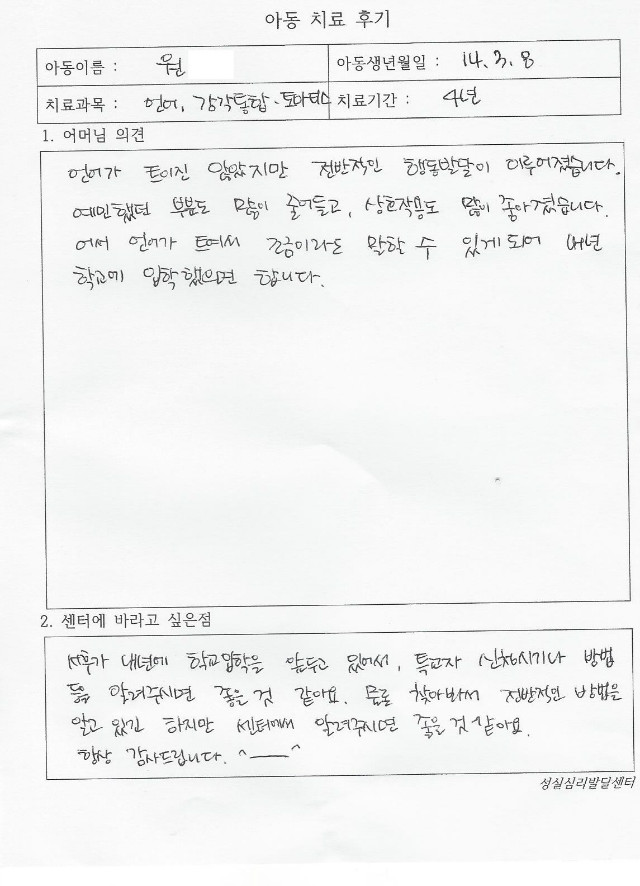 아동 치료 후기
아동이름 : 우원 아동생년월일 : 14. 3. 8
치료과목 : 언어, 감각통합·토마티스 치료기간 : 4년
1. 어머님 의견
언어가 트이진 않았지만 전반적인 행동발달이 이루어졌습니다.
예민했던 부분도 많이 줄어들고, 상호작용도 많이 좋아졌습니다.
어서 언어가 트여서 조금이라도 말할 수 있게 되어 내년
학교에 입학했으면 합니다.
2. 센터에 바라고 싶은점
내년에 학교입학을 앞두고 있어서, 특교자 신청시기나 방법
등을 알려주시면 좋을 것 같아요. 물론 찾아봐서 전반적인 방법은
알고 있긴 하지만 센터에서 알려주시면 좋을 것 같아요.
항상 감사드립니다. ^____^
성실심리발달센터